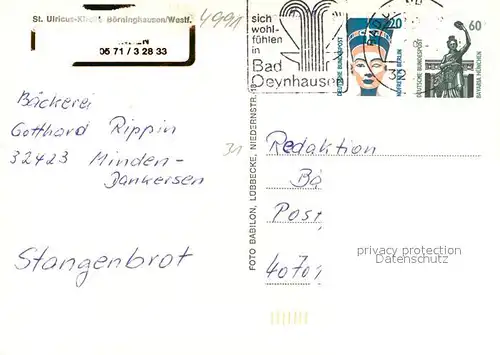 St. Ulricus-Kirche Börninghausen/Westf.
05 71 / 3 28 33
4991
sich
wohl-
fühlen
in
Bad
Oeynhausen
20
DEUTSCHE BUNDESPOST
NOFRETETE BERLIN
60
DEUTSCHE BUNDESPOST
BAVARIA MÜNCHEN
Bäckerei
Gotthard Rippin
32423 Minden-
Dankersen
Stangenbrot
31
FOTO BABILON, LÜBBECKE, NIEDERNSTR. 18
Redaktion
Bä
Post
privacy protection
Datenschutz